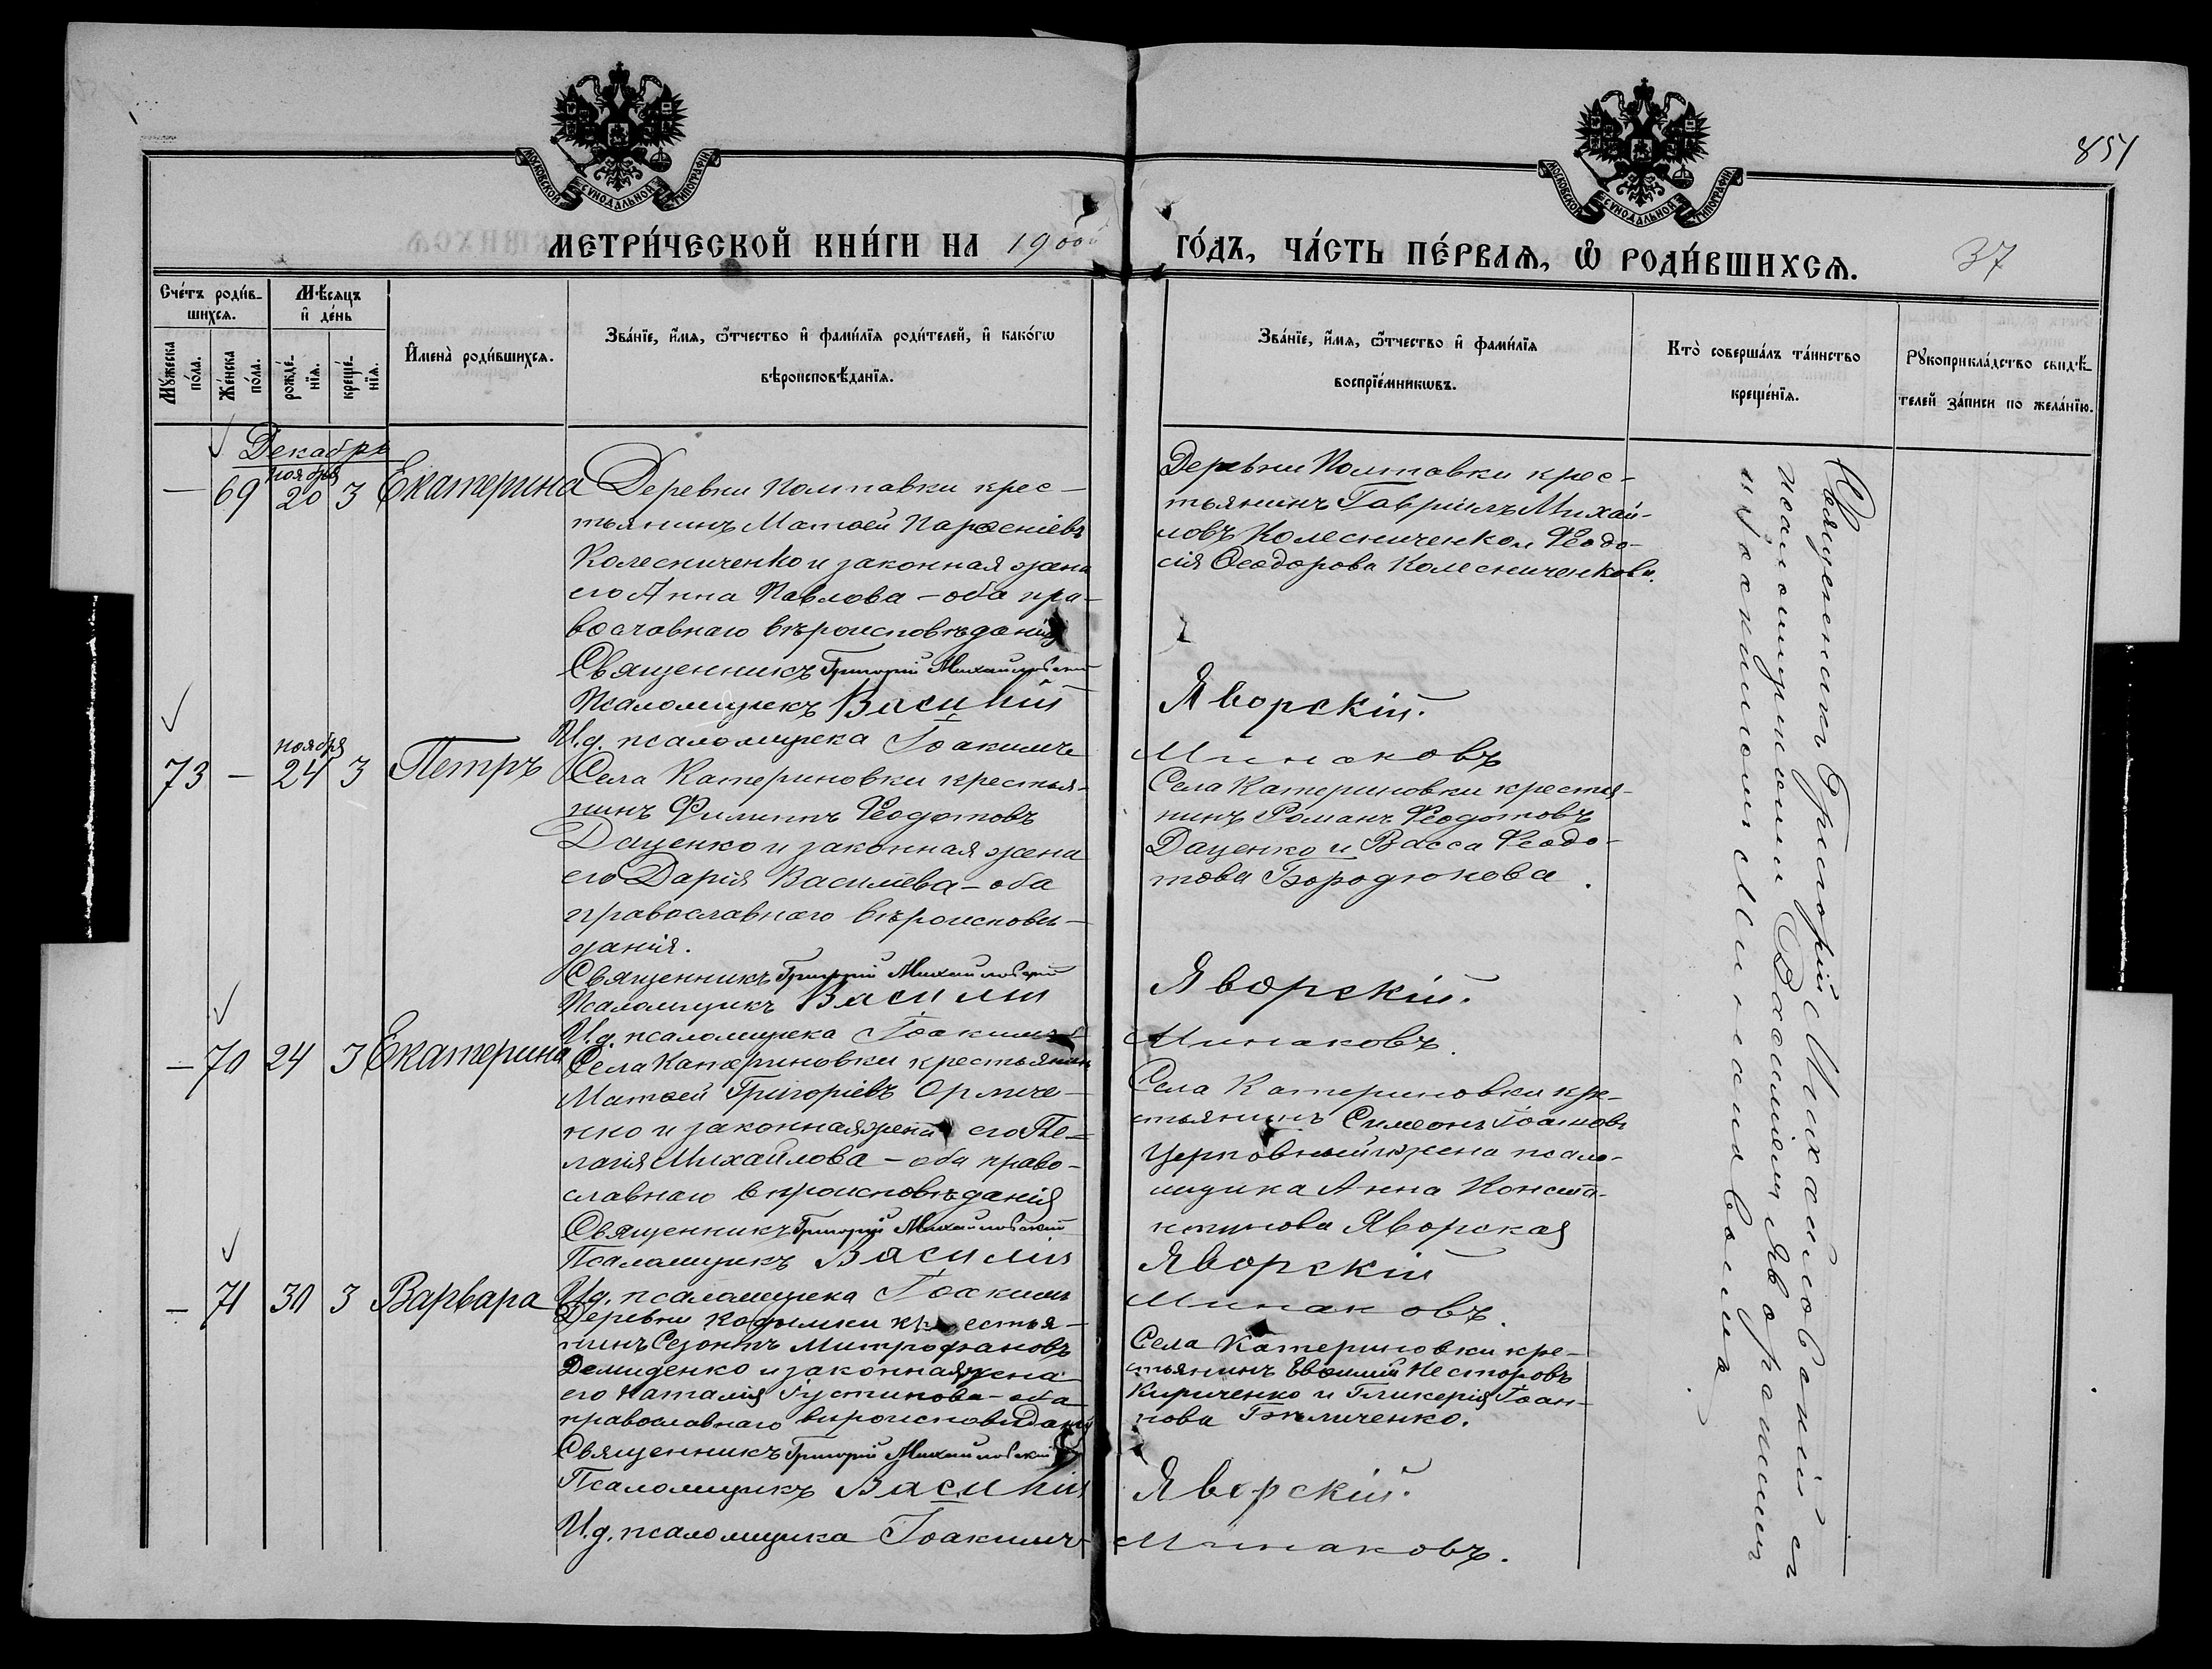 851
МОСКОВСКОЙ СѴНОДАЛЬНОЙ ТИПОГРАФІИ
МОСКОВСКОЙ СѴНОДАЛЬНОЙ ТИПОГРАФІИ
МЕТРИ́ЧЕСКОЙ КНИ́ГИ НА 1900й
ГО́ДЪ, ЧА́СТЬ ПЕ́РВАѦ, Ѿ РОДИ́ВШИХСѦ.
37
Сче́тъ роди́в-
шихсѧ.
Мѣ́сѧцъ
и҆ де́нь
Мꙋ́жеска по́ла.
Же́нска по́ла.
рожде́-
нїѧ.
креще́-
нїѧ.
И҆мена̀ роди́вшихсѧ.
Зва́нїе, и҆́мѧ, ѻ҆́тчество и҆ фами́лїѧ роди́телей, и҆ како́гѡ
вѣроисповѣ́данїѧ.
Зва́нїе, и҆́мѧ, ѻ҆́тчество и҆ фами́лїѧ
воспрїе́мникѡвъ.
Кто̀ соверша́лъ та́инство
креще́нїѧ.
Рꙋкоприкла́дство свидѣ́-
телей за́писи по жела́нїю.
Декабрь
— 69 ноября 20 3 Екатерина
Деревни Полтавки крес-
тьянинъ Матѳей Парѳеніевъ
Колесниченко и законная жена
его Анна Павлова – оба пра-
вославнаго вѣроисповѣданія
Священникъ Григорій Михайловскій
Псаломщикъ Василій
И.д. псаломщика Іоакимъ
Деревни Полтавки крес-
тьянинъ Гавріилъ Михай-
ловъ Колесниченко и Ѳеодо-
сія Ѳеодорова Колесниченкова.
Яворскій.
Минаковъ
73 — ноября 24 3 Петръ
Села Катериновки крестья-
нинъ Филиппъ Ѳеодотовъ
Даценко и законная жена
его Дарія Василіева – оба
православнаго вѣроисповѣ-
данія.
Священникъ Григорій Михайловскій
Псаломщикъ Василій
И.д. псаломщика Іоакимъ
Села Катериновки крестья-
нинъ Романъ Ѳеодотовъ
Даценко и Васса Ѳеодо-
това Бородюкова.
Яворскій.
Минаковъ.
— 70 24 3 Екатерина
Села Катериновки крестьянинъ
Матѳей Григоріевъ
и законная жена его Пе-
лагія Михайлова – оба право-
славнаго вѣроисповѣданія
Священникъ Григорій Михайловскій
Псаломщикъ Василій
И.д. псаломщика Іоакимъ
Села Катериновки кре-
стьянинъ Симеонъ Іоанновъ
Церковный и жена псало-
мщика Анна Конста-
нтинова Яворская
Яворскій
Минаковъ.
— 71 30 3 Варвара
Деревни крестья-
нинъ Созонтъ Митрофановъ
Демиденко и законная жена
его Наталія Іустинова – оба
православнаго вѣроисповѣданія
Священникъ Григорій Михайловскій
Псаломщикъ Василій
И.д. псаломщика Іоакимъ
Села Катериновки кре-
стьянинъ Евѳимій Несторовъ
Кириченко и Гликерія Іоан-
нова Бѣличенко.
Яворскій.
Минаковъ.
Священникъ Григорій Михайловскій съ
псаломщиками Василіемъ Яворскимъ
и Іоакимомъ Минаковымъ